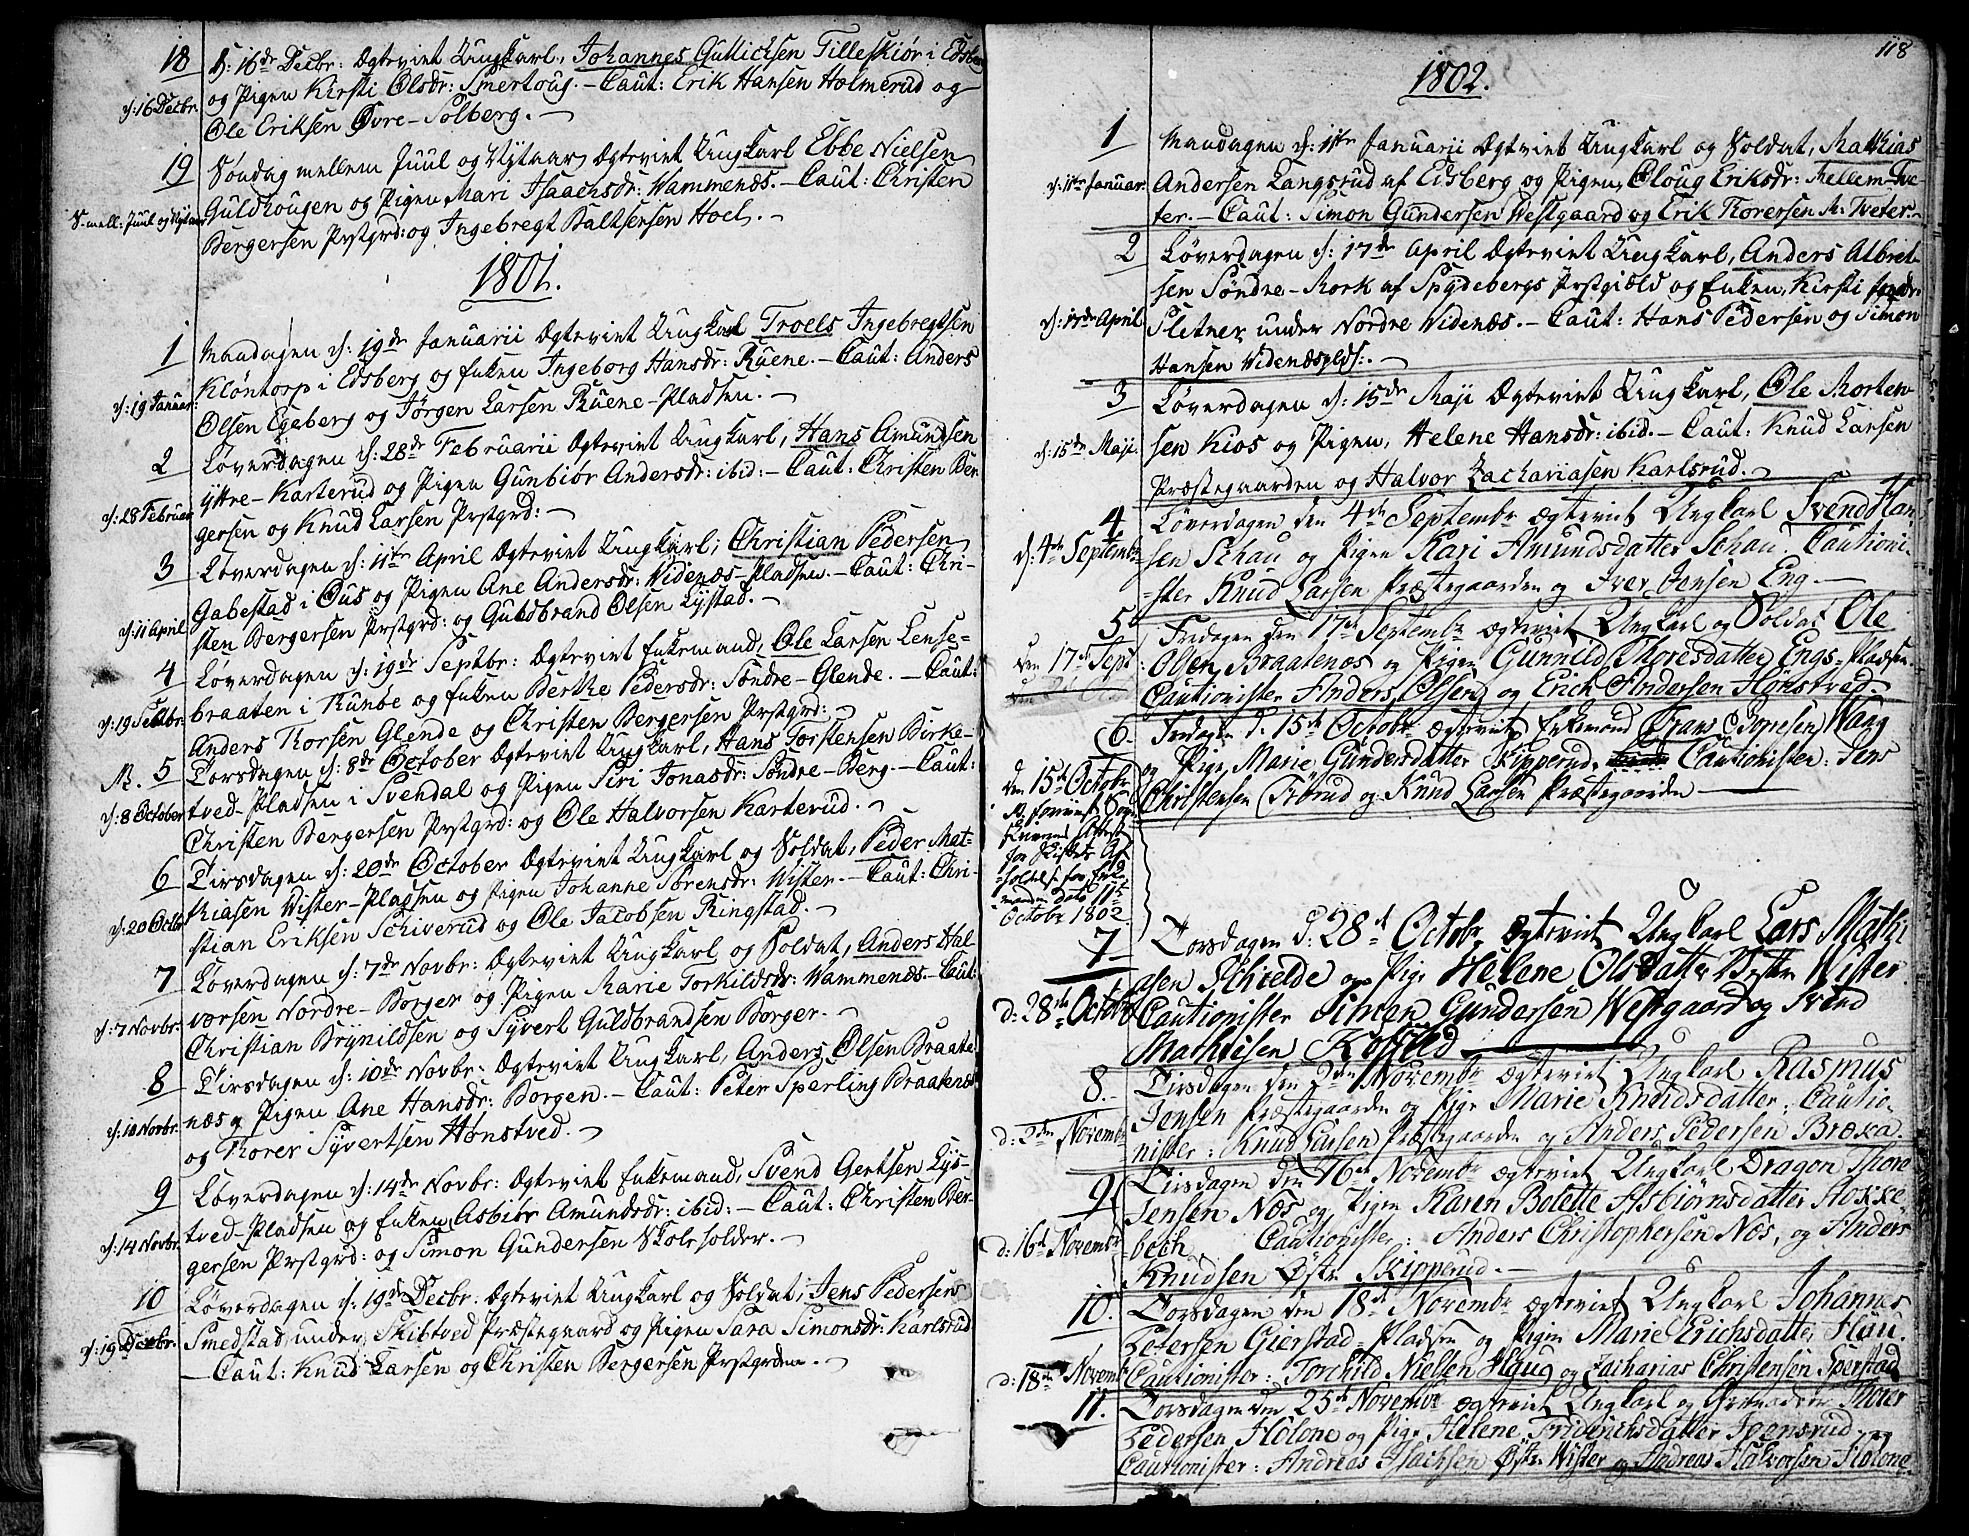 18
d: 16de Decbr: Ægteviet Ungkarl, Johannes Gullichsen Tilleskiør i Edsberg
d: 16 Decbr.
og Pigen Kirsti Olsdr: Smertoug. – Caut: Erik Hansen Holmerud og
Ole Eriksen Øvre-Solberg. –
19
Søndag mellem Juul og Nytaar Ægteviet Ungkarl Ebbe Nielsen
S. mell: Juul og Nytaar
Guldhougen og Pigen Mari Isaachsdr: Wammenæs. – Caut: Christen
Bergersen Prstgrd: og Ingebregt Baltsersen Hoel. –
1801.
1
Mandagen d: 19de Januarii Ægteviet Ungkarl Troels Ingebregtsen
d: 19 Januar:
Kløntorp i Edsberg og Enken Ingeborg Hansdr: Ruene. – Caut: Anders
Olsen Egeberg og Jørgen Larsen Ruene-Pladsen. –
2
Løverdagen d: 28de Februarii Ægteviet Ungkarl, Hans Amundsen
d: 28 Februar
Yttre-Karterud og Pigen Gunbiør Andersdr: ibid: – Caut: Christen Ber-
gersen og Knud Larsen Prstgrd: –
3
Løverdagen d: 11te April Ægteviet Ungkarl, Christian Pedersen
d: 11 April
Gabestad i Ous og Pigen Ane Andersdr: Widenæs-Pladsen. – Caut: Chri-
sten Bergersen Prstgrd: og Guldbrand Olsen Lystad. –
4
Løverdagen d: 19de Septbr: Ægteviet Enkemand, Ole Larsen Lense-
d: 19 Septbr.
braaten i Kunbe og Enken Berthe Pedersdr: Søndre-Glende. – Caut:
Anders Thorsen Glende og Christen Bergersen Prstgrd: –
5
Torsdagen d: 8de October Ægteviet Ungkarl, Hans Torstensen Birke-
d: 8 October
tved-Pladsen i Svendal og Pigen Siri Jonasdr: Søndre-Berg – Caut:
Christen Bergersen Prstgrd: og Ole Halvorsen Karterud. –
6
Tirsdagen d: 20de October Ægteviet Ungkarl og Soldat, Peder Mat-
d: 20 Octbr
thiasen Wister-Pladsen og Pigen Johanne Sørensdr: Wister. – Caut: Chri-
stian Eriksen Schiverud og Ole Jacobsen Ringstad. –
7
Løverdagen d: 7de Novbr: Ægteviet Ungkarl og Soldat, Anders Hal-
d: 7 Novbr:
vorsen Nordre-Borger og Pigen Marie Torkildsdr: Wammenæs – Caut:
Christian Brynildsen og Syvert Guldbrandsen Borger. –
8
Tirsdagen d: 10de Novbr: Ægteviet Ungkarl, Anders Olsen Braate-
d: 10 Novbr.
næs og Pigen Ane Hansdr: Borgen. – Caut: Peter Sperling Braatenæs
og Thorer Syvertsen Hønstved. –
9
Løverdagen d: 14de Novbr: Ægteviet Enkemand, Svend Gertsen Lys-
d: 14 Novbr.
tved-Pladsen og Enken Asbiør Amundsdr: ibid: – Caut: Christen Ber-
gersen Prstgrd: og Simon Gundersen Skoleholder. –
10
Løverdagen d: 19de Decbr: Ægteviet Ungkarl og Soldat, Jens Pedersen
d: 19 Decbr.
Smedstad under Skibtved Præstegaard og Pigen Sara Simonsdr: Karlsrud
– Caut: Knud Larsen og Christen Bergersen Prstgrden. –
118
1802.
1
Mandagen d: 11te Januarii Ægteviet Ungkarl og Soldat, Mathias
d: 11te Januar.
Andersen Langsrud af Edsberg og Pigen, Oloug Eriksdr: Mellem-Tve-
ter. – Caut: Simon Gundersen Westgaard og Erik Thorersen M: Tveter. –
2
Løverdagen d: 17de April Ægteviet Ungkarl, Anders Albret-
sen Søndre-Mork af Spydebergs Prstgield og Enken, Kirsti
d: 17de April
Sletner under Nordre Widenæs. – Caut: Hans Pedersen og Simon
Hansen Widenæsplds: –
3
Løverdagen d: 15de Maji Ægteviet Ungkarl, Ole Morten-
d: 15de Maji.
sen Kios og Pigen, Helene Hansdr: ibid. – Caut: Knud Larsen
Præstegaarden og Halvor Zachariasen Karlsrud. –
4
Løverdagen den 4de Septembr ægteviet Ungkarl Svend Han-
d: 4de Septembr
sen Schau og Pigen Kari Amundsdatter Schau. Cautioni-
ster Knud Larsen Præstegaarden og Iver Jensen Eng. –
5
Fredagen den 17de Septembr ægteviet Ungkarl og Soldat Ole
den 17de Septr:
Olsen Braatenæs og Pigen Gunnild Thoresdatter Engs-Pladsen.
Cautionister Anders Olsen og Erich Andersen Hønstved.
6.
Fredagen d. 15de Octobr. ægteviet Enkemand
og Pige Marie Gundersdatter Skipperud. Cautionister: Jens
den 15de Octobr
Christensen Trørud og Knud Larsen Præstegaarden
Octobr 1802
7
Torsdagen d: 28de Octobr. ægteviet Ungkarl Lars Mathi-
asen Schielde og Pige Helene Olsdatter Westre Wister.
d: 28de Octobr
Cautionister Simen Gundersen Westgaard og Svend
Mathisen Kolsted
8.
Tirsdagen den 2den Novembr ægteviet Ungkarl Rasmus
Jensen Præstegaarden og Pige Marie Knudsdatter. Cautio-
d: 2den Novembr
nister: Knud Larsen Præstegaarden og Anders Pedersen Bræxa.
9
Tirsdagen den 16de Novembr ægteviet Ungkarl Dragon Thore
Jensen Næs og Pigen Karen Bolette Asbiørnsdatter Rokke-
d: 16de Novembr
bech. Cautionister: Anders Christophersen Næs, og Anders
Knudsen Østre Skipperud. –
10.
Torsdagen den 18de Novembr ægteviet Ungkarl Johannes
Petersen Gierstad-Pladsen og Pigen Marie Erichsdatter Hau.
d: 18de Novembr
Cautionister: Torchild Nielsen Haug og Zacharias Christensen Sperstad
11.
Torsdagen den 25de Novembr ægteviet Ungkarl og Grenadeer Thorer
Pedersen Holone og Pige Helene Friderichsdatter Ivensrud.
Cautionister: Andreas Isachsen Østre Wister og Andreas Halvorsen Holone.